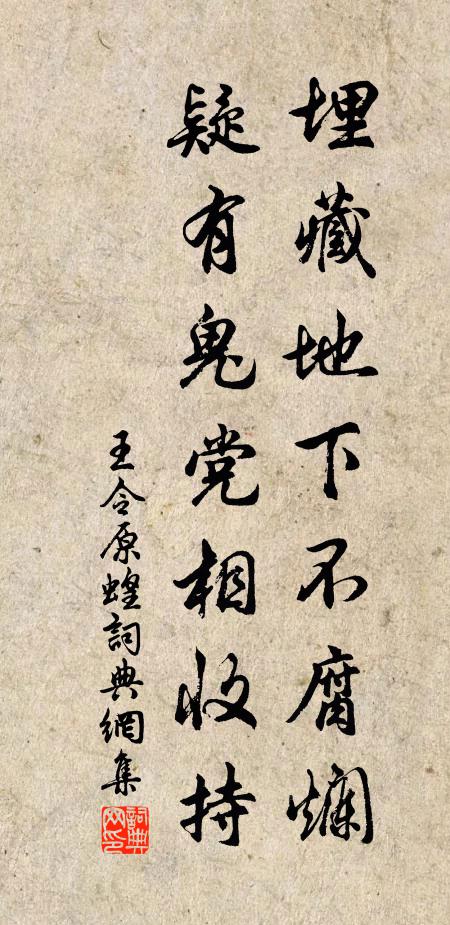 埋藏地下不腐爛
疑有鬼党相收持
王令原蝗詞典網集
詞典網印